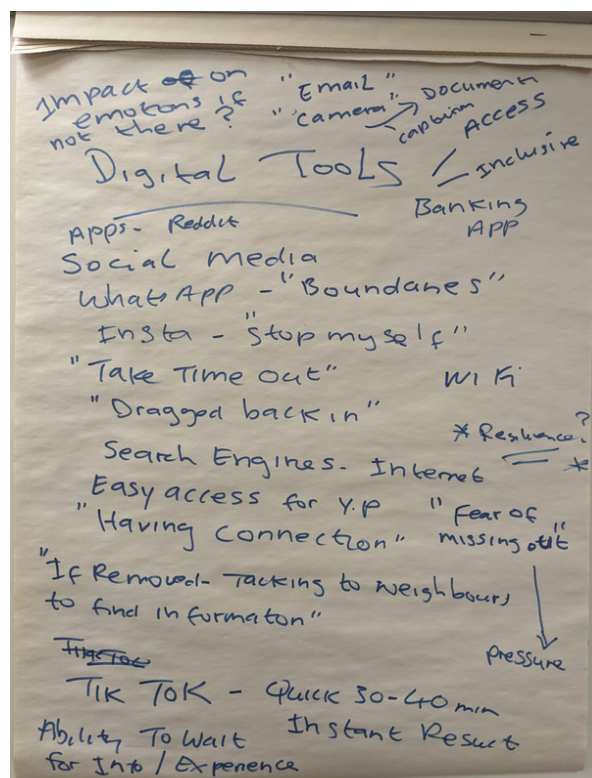 Impact on "Email"
emotions if "Camera" Document
not there? Captuirm Access
Digital Tools Inclusive
Banking
App
Apps - Reddit
Social media
WhatsApp - "Boundanes"
Insta - "Stop myself"
"Take Time out" WiFi
"Dragged back in"
* Resilience? *
Search Engines - Internet
Easy access for Y.P "Fear of
"Having connection" missing out"
"If Removed - Tacking to neighbours
to find informaton"
pressure
Tik Tok - Quick 30-40 min
Ability To Wait Instant Result
for Info / Experience